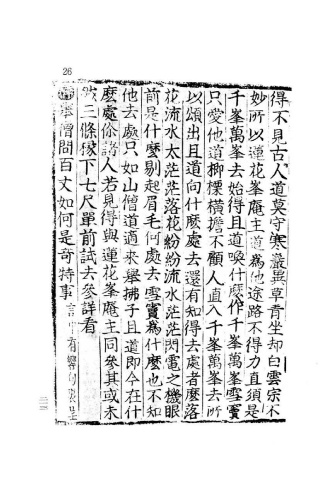 26
得不見古人道莫守寒巖異草青坐却白雲宗不
妙所以蓮花峯庵主道為他途路不得力直須是
千峯萬峯去始得且道喚什麼作千峯萬峯雪竇
只愛他道楖樸橫擔不顧人直入千峯萬峯去所
以頌出且道向什麼處去還有知得去處者麼落
花流水太茫茫落花紛紛流水茫茫閃電之機眼
前是什麼剔起眉毛何處去雪竇為什麼也不知
他去處只如山僧道適來舉拂子且道即今在什
麼處你諸人若見得與蓮花峯庵主同參其或未
三條椽下七尺單前試去參詳看
舉僧問百丈如何是奇特事 言中有響句